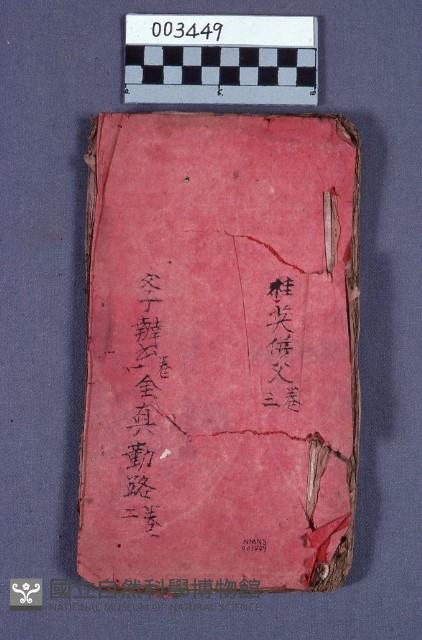 003449
桂英
父
三卷
父子
卷一
金真
勸路
二卷
NMNS
003449
國立自然科學博物館
NATIONAL MUSEUM OF NATURAL SCIENCE